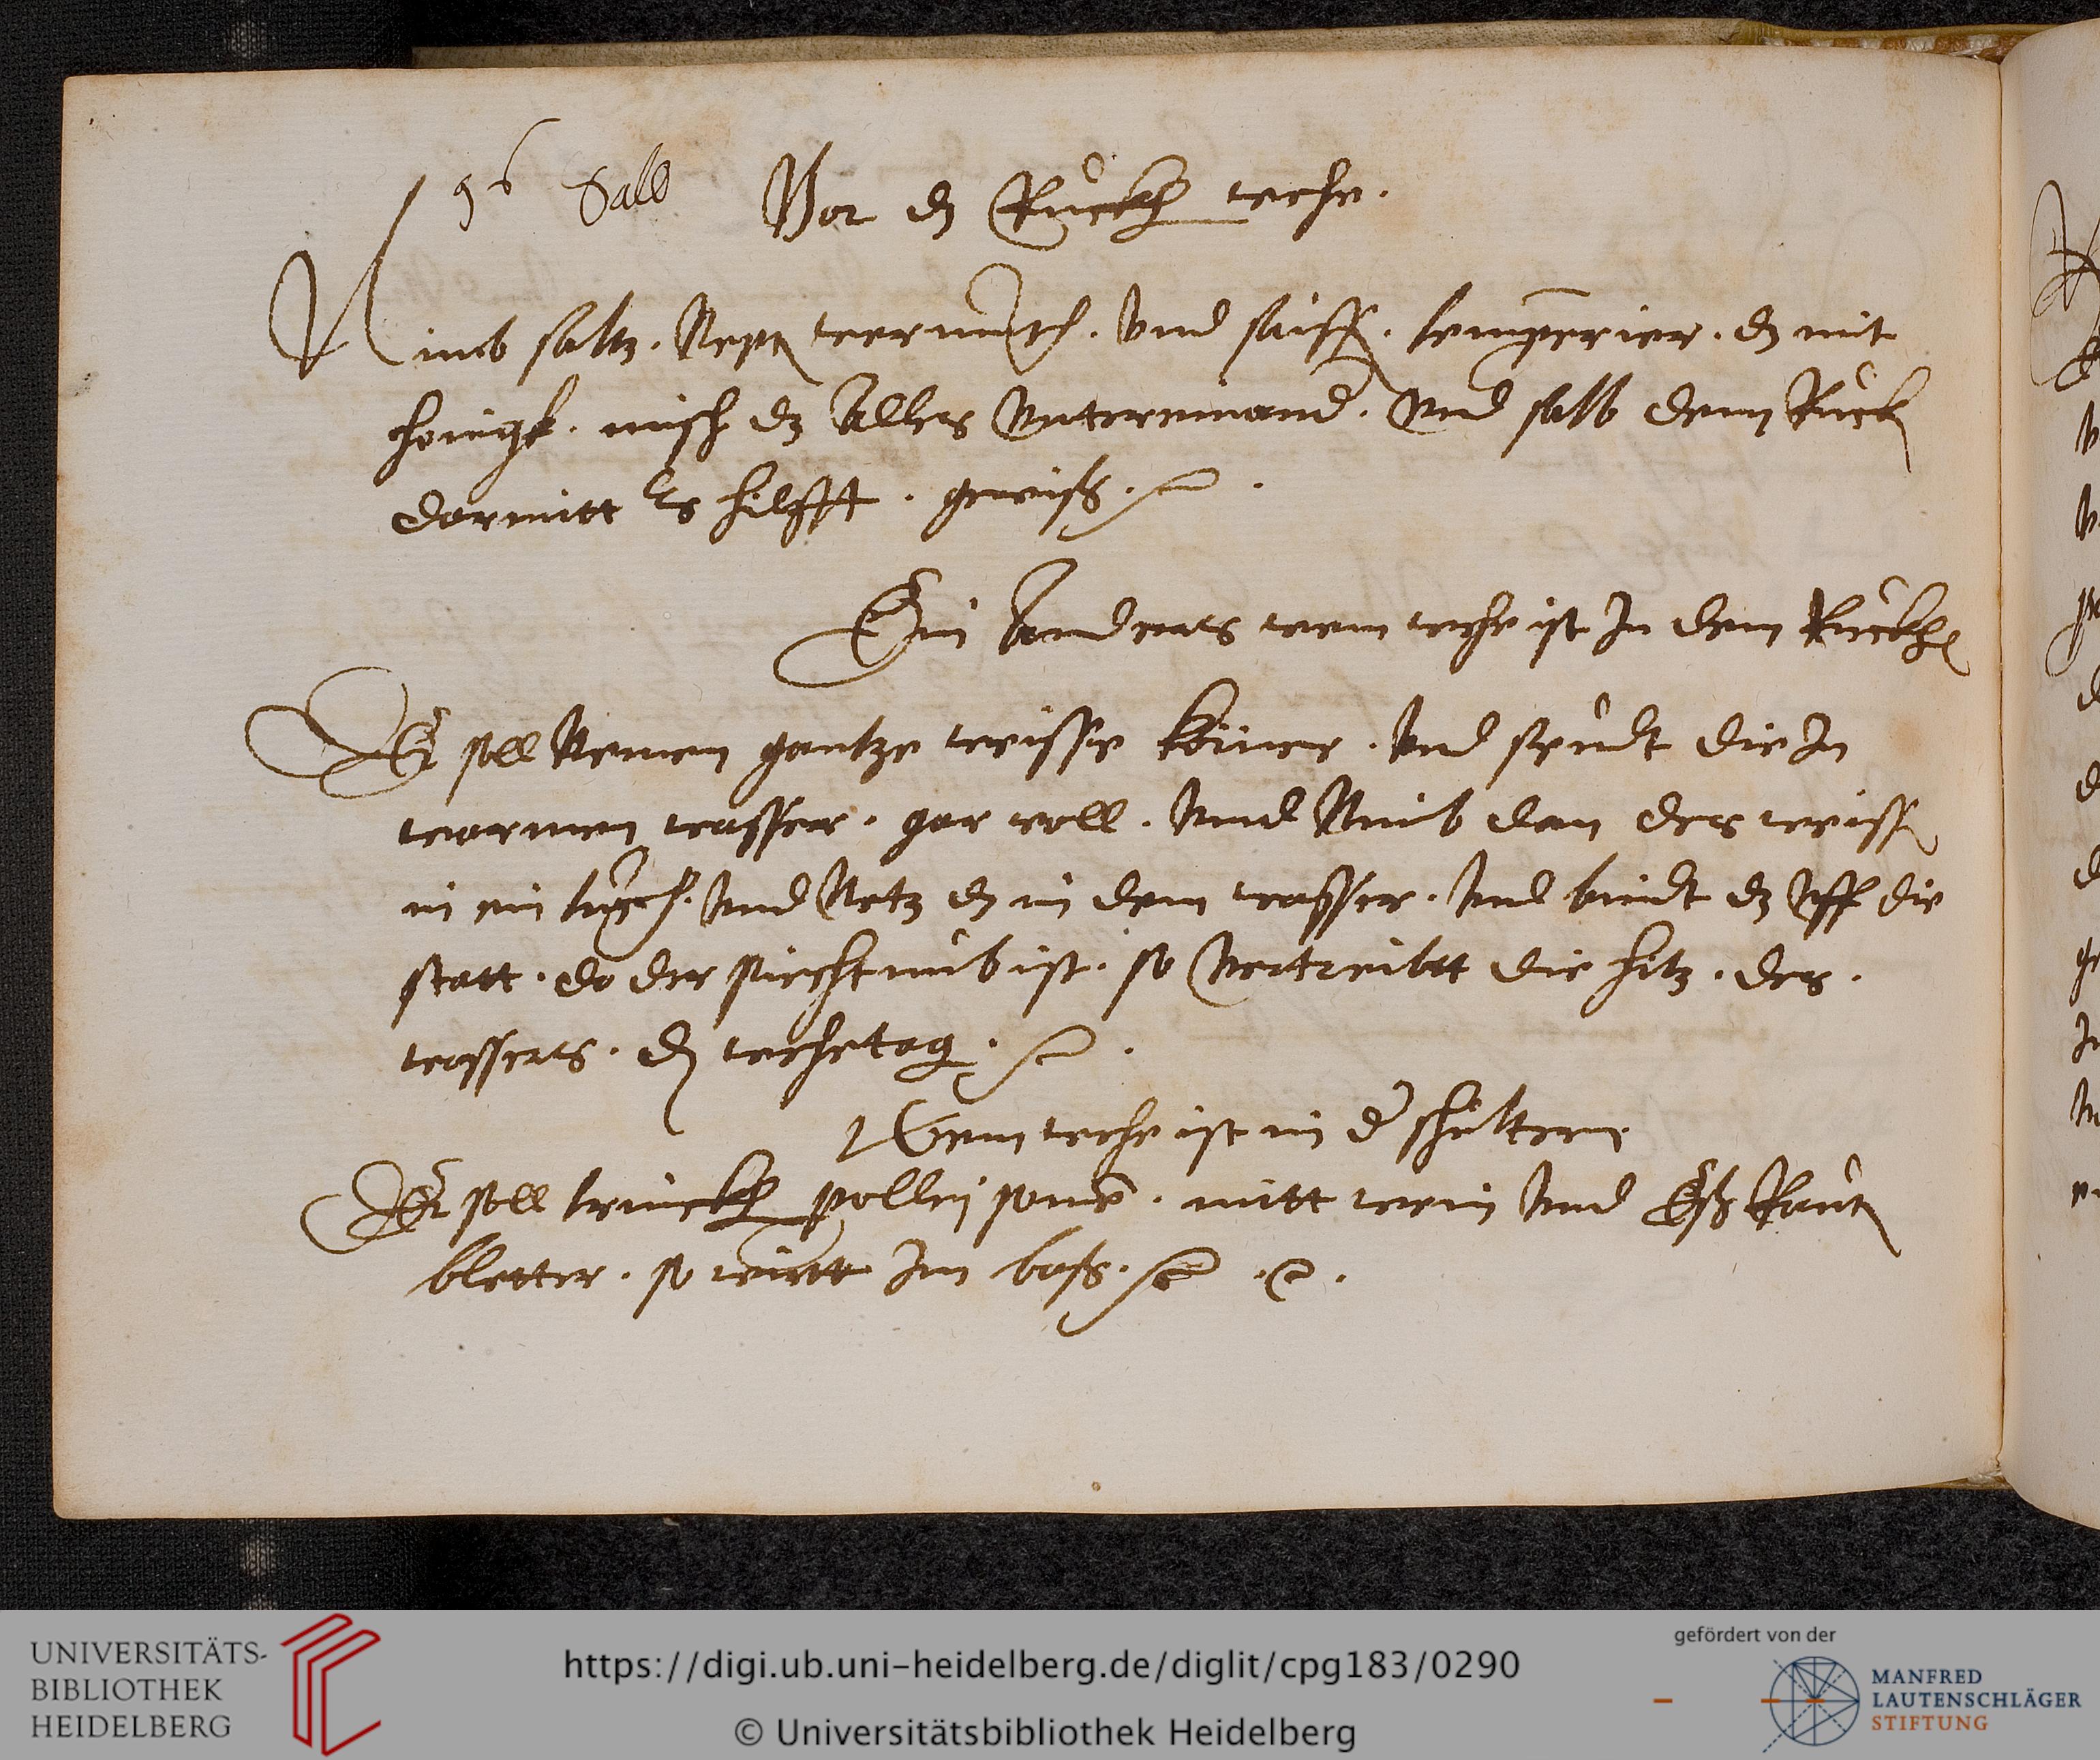 96 Salb Vor dz Ruckh wehe.
Nimb saltz. Nept wermuth. vnd saiff. temperier. dz mit
honigk. misch dz Alles vntereinand. vnd salb denn Ruck
darmitt Es hilfft. gewiß.
Ein Anderts wem wehe ist In dem Ruckh
Er soll Nemen gantze weisse körner. vnd seudt die In
warmen wasser. gar woll. vnnd Nimb dan des weiß
in ein tuch. vnnd Netz dz in dem wasser. vnnd bindt dz vff die
statt. do der siechtumb ist. so vertreibtt die hitz. des.
wassers. dz wehetag.
Wem wehe ist in der schultern
Er soll trinckh pollej somen. mitt wein vnnd Eß Raut
bletter. so wirtt Im baß.
UNIVERSITÄTS-
BIBLIOTHEK
HEIDELBERG
https://digi.ub.uni-heidelberg.de/diglit/cpg183/0290
© Universitätsbibliothek Heidelberg
gefördert von der
MANFRED
LAUTENSCHLÄGER
STIFTUNG